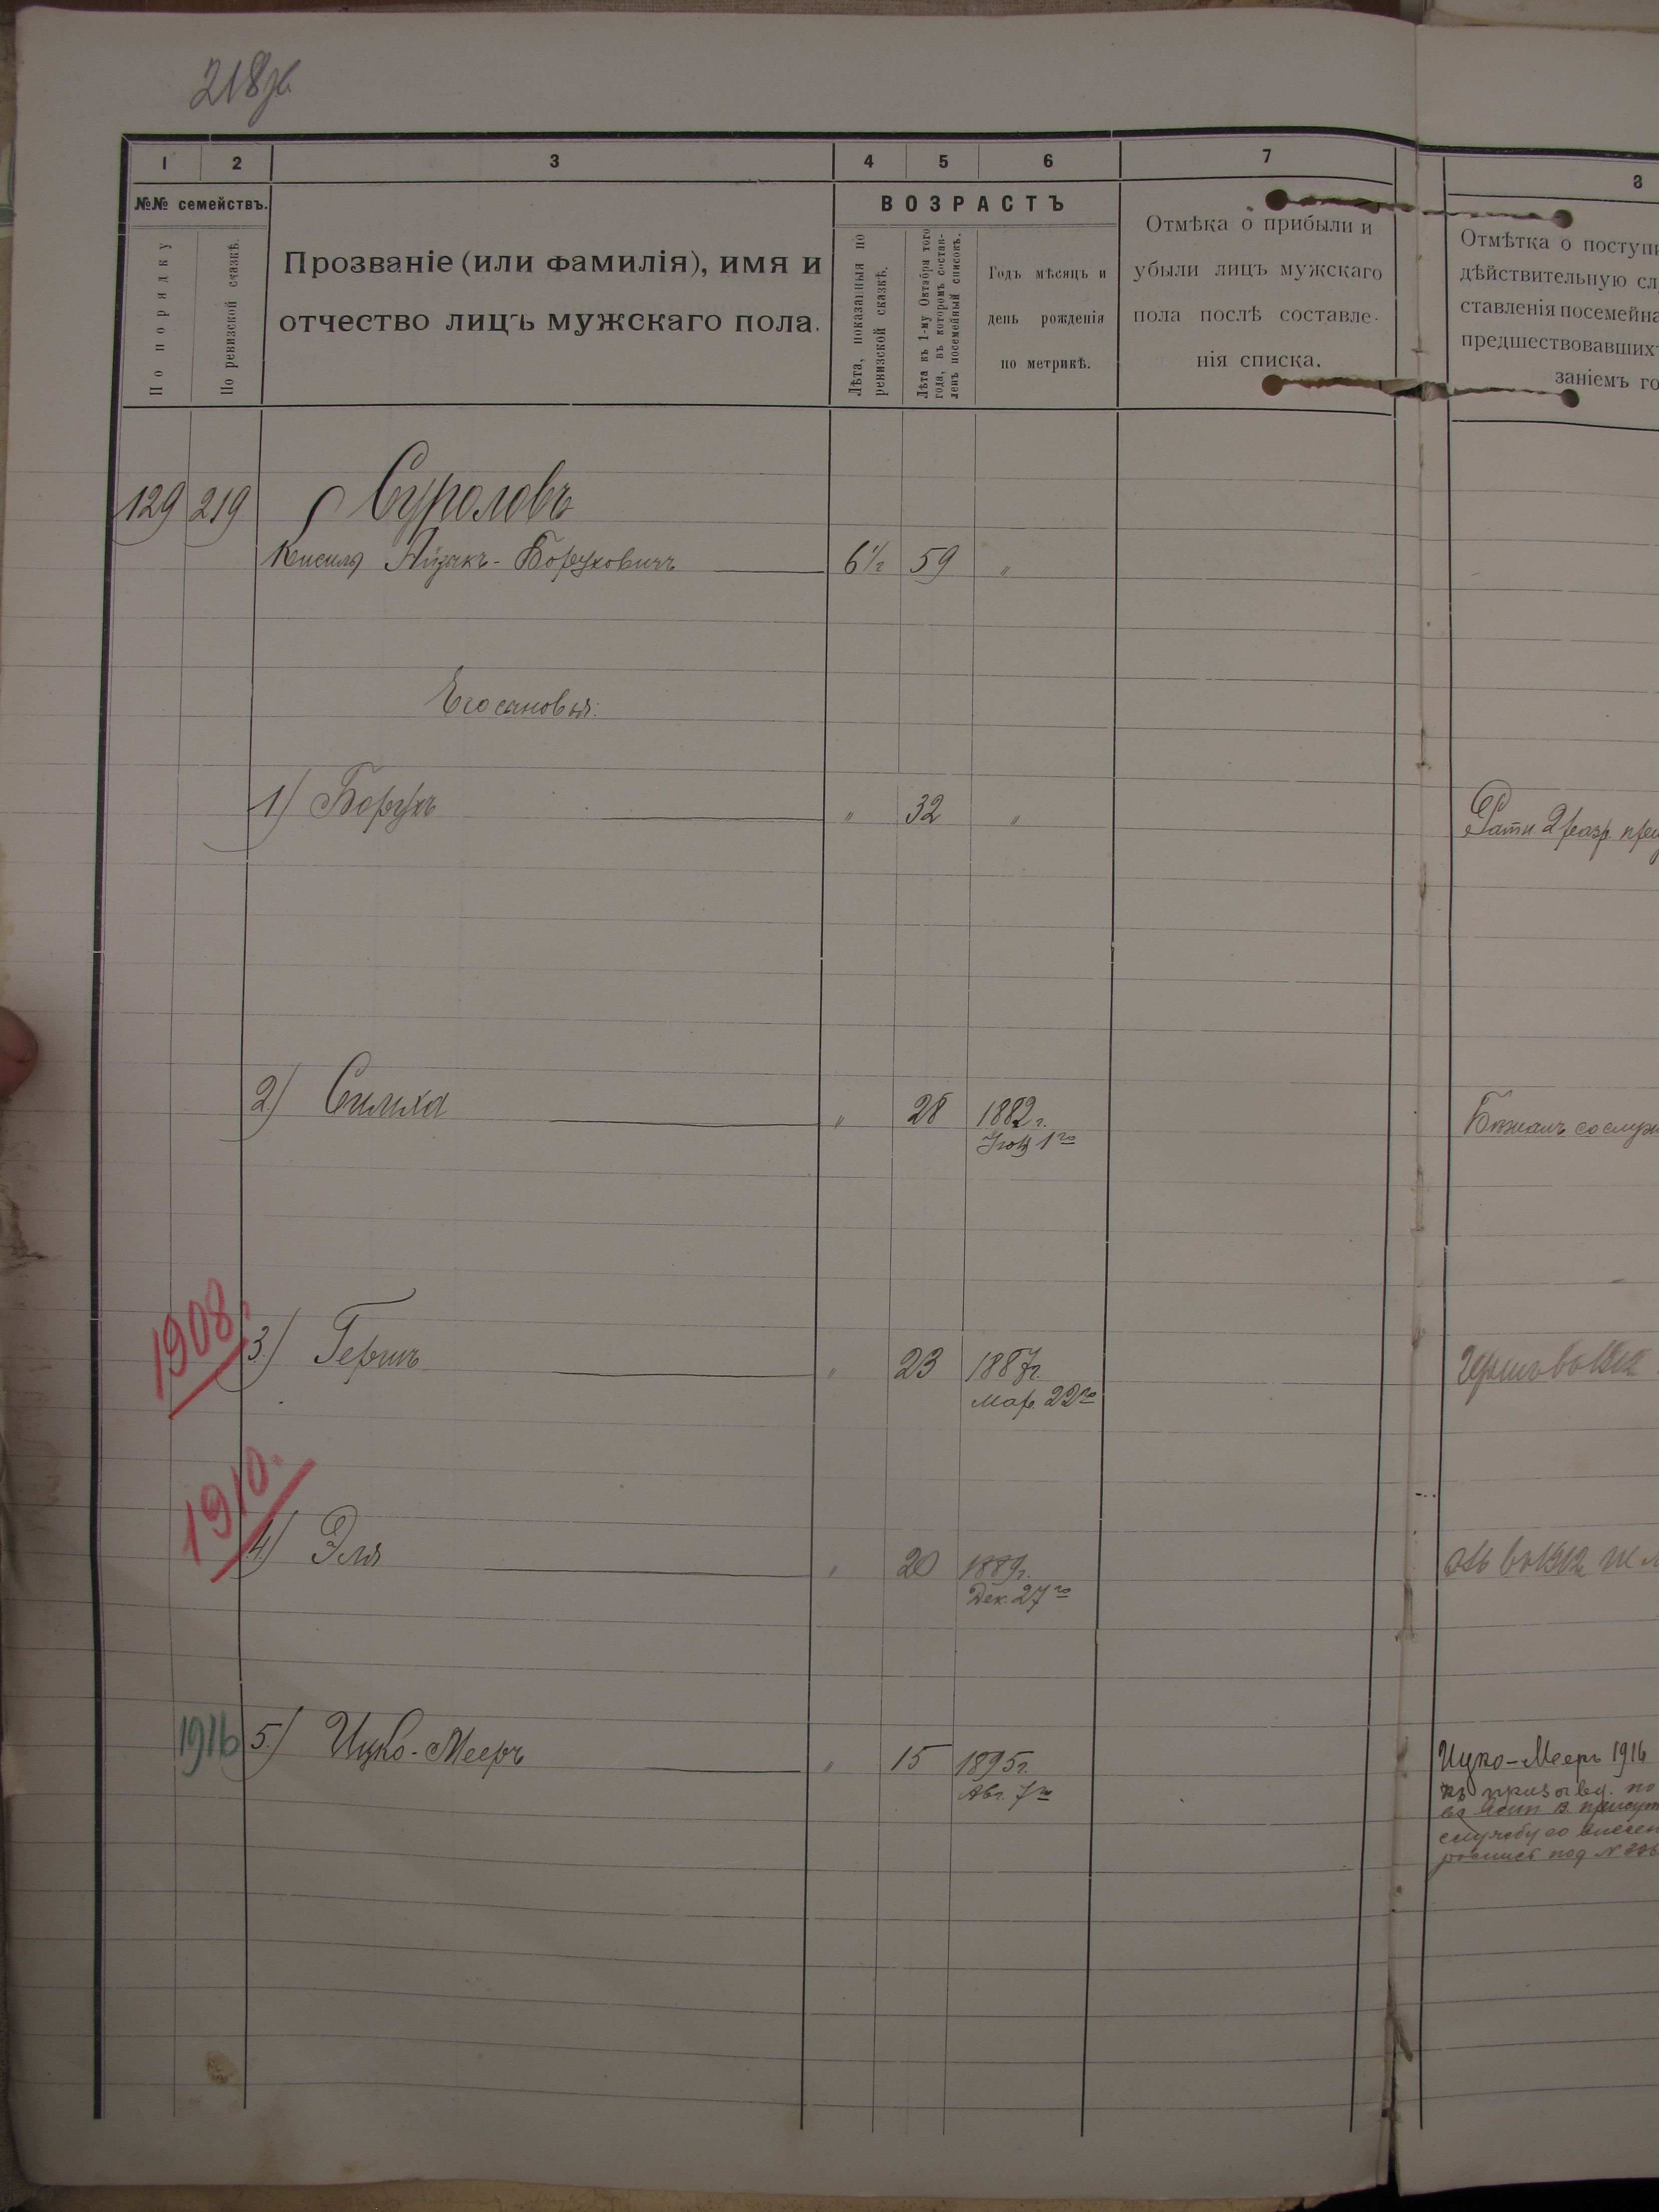 218 об
1 2 3 4 5 6 7 8
№№ семействъ.
По порядку
По ревизской сказкѣ.
Прозваніе (или фамилія), имя и
отчество лицъ мужскаго пола.
ВОЗРАСТЪ
Лѣта, показанныя по
ревизской сказкѣ.
Лѣта къ 1-му Октября того
года, въ которомъ состав-
ленъ посемейный списокъ.
Годъ мѣсяцъ и
день рожденія
по метрикѣ.
Отмѣка о прибыли и
убыли лицъ мужскаго
пола послѣ составле-
нія списка.
Отмѣтка о поступи
дѣйствительную сл
ставленія посемейна
предшествовавшихъ
заніемъ го
129 219
Кисиль Айзикъ-Боруховичъ 6½ 59 "
Его сыновья:
1) Борухъ " 32 " Ратн. 2 разр.
2) Симха " 28 1882 г.
1го
1908.
3) Гершъ " 23 1887г.
Мар. 22го
1910.
4) Эля " 20 1889г.
Дек. 27го
1916 5) Ицко-Мееръ " 15 1895г. Ицко-Мееръ 1916
Авг. 7го къ призыву. по